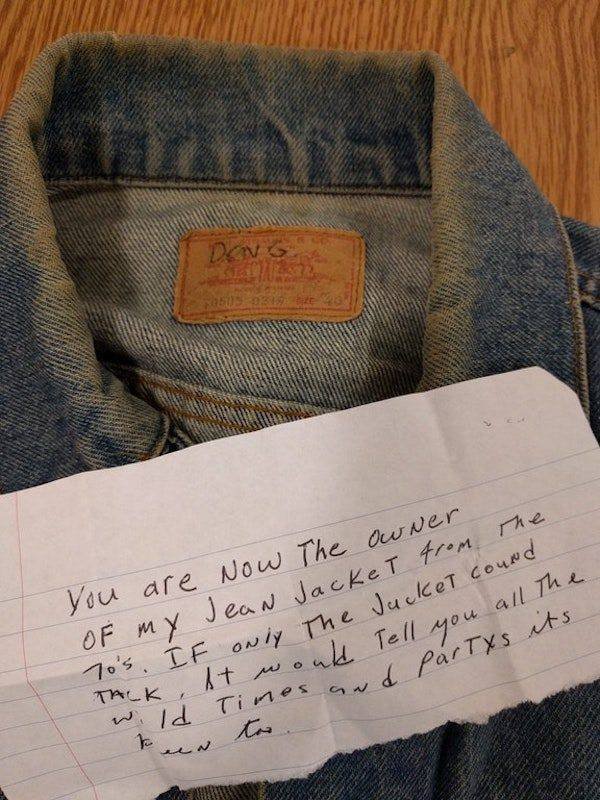 SIZE 40
You are Now The owner
OF my Jean Jacket from The
70's. IF only The Jacket cound
TALK, It would Tell you all The
wild Times and ParTys its
been to.